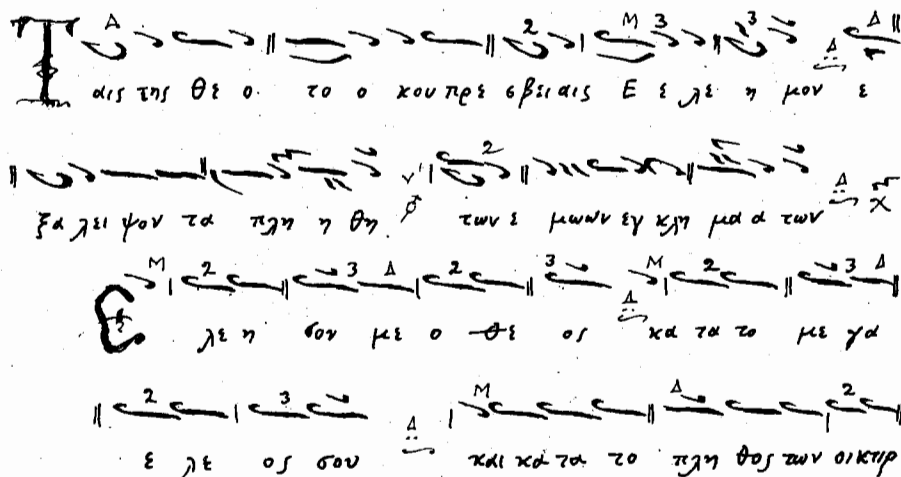 Ταις της θε ο το ο κου πρε σβει αις Ε ε λε η μον ε
ξα λει ψον τα πλη η θη των ε μωων εγ κλη μα α των
Ε λε η σον με ο θε ος κα τα το με γα
ε λε ος σου και κα τα το πλη θος των οικτιρ